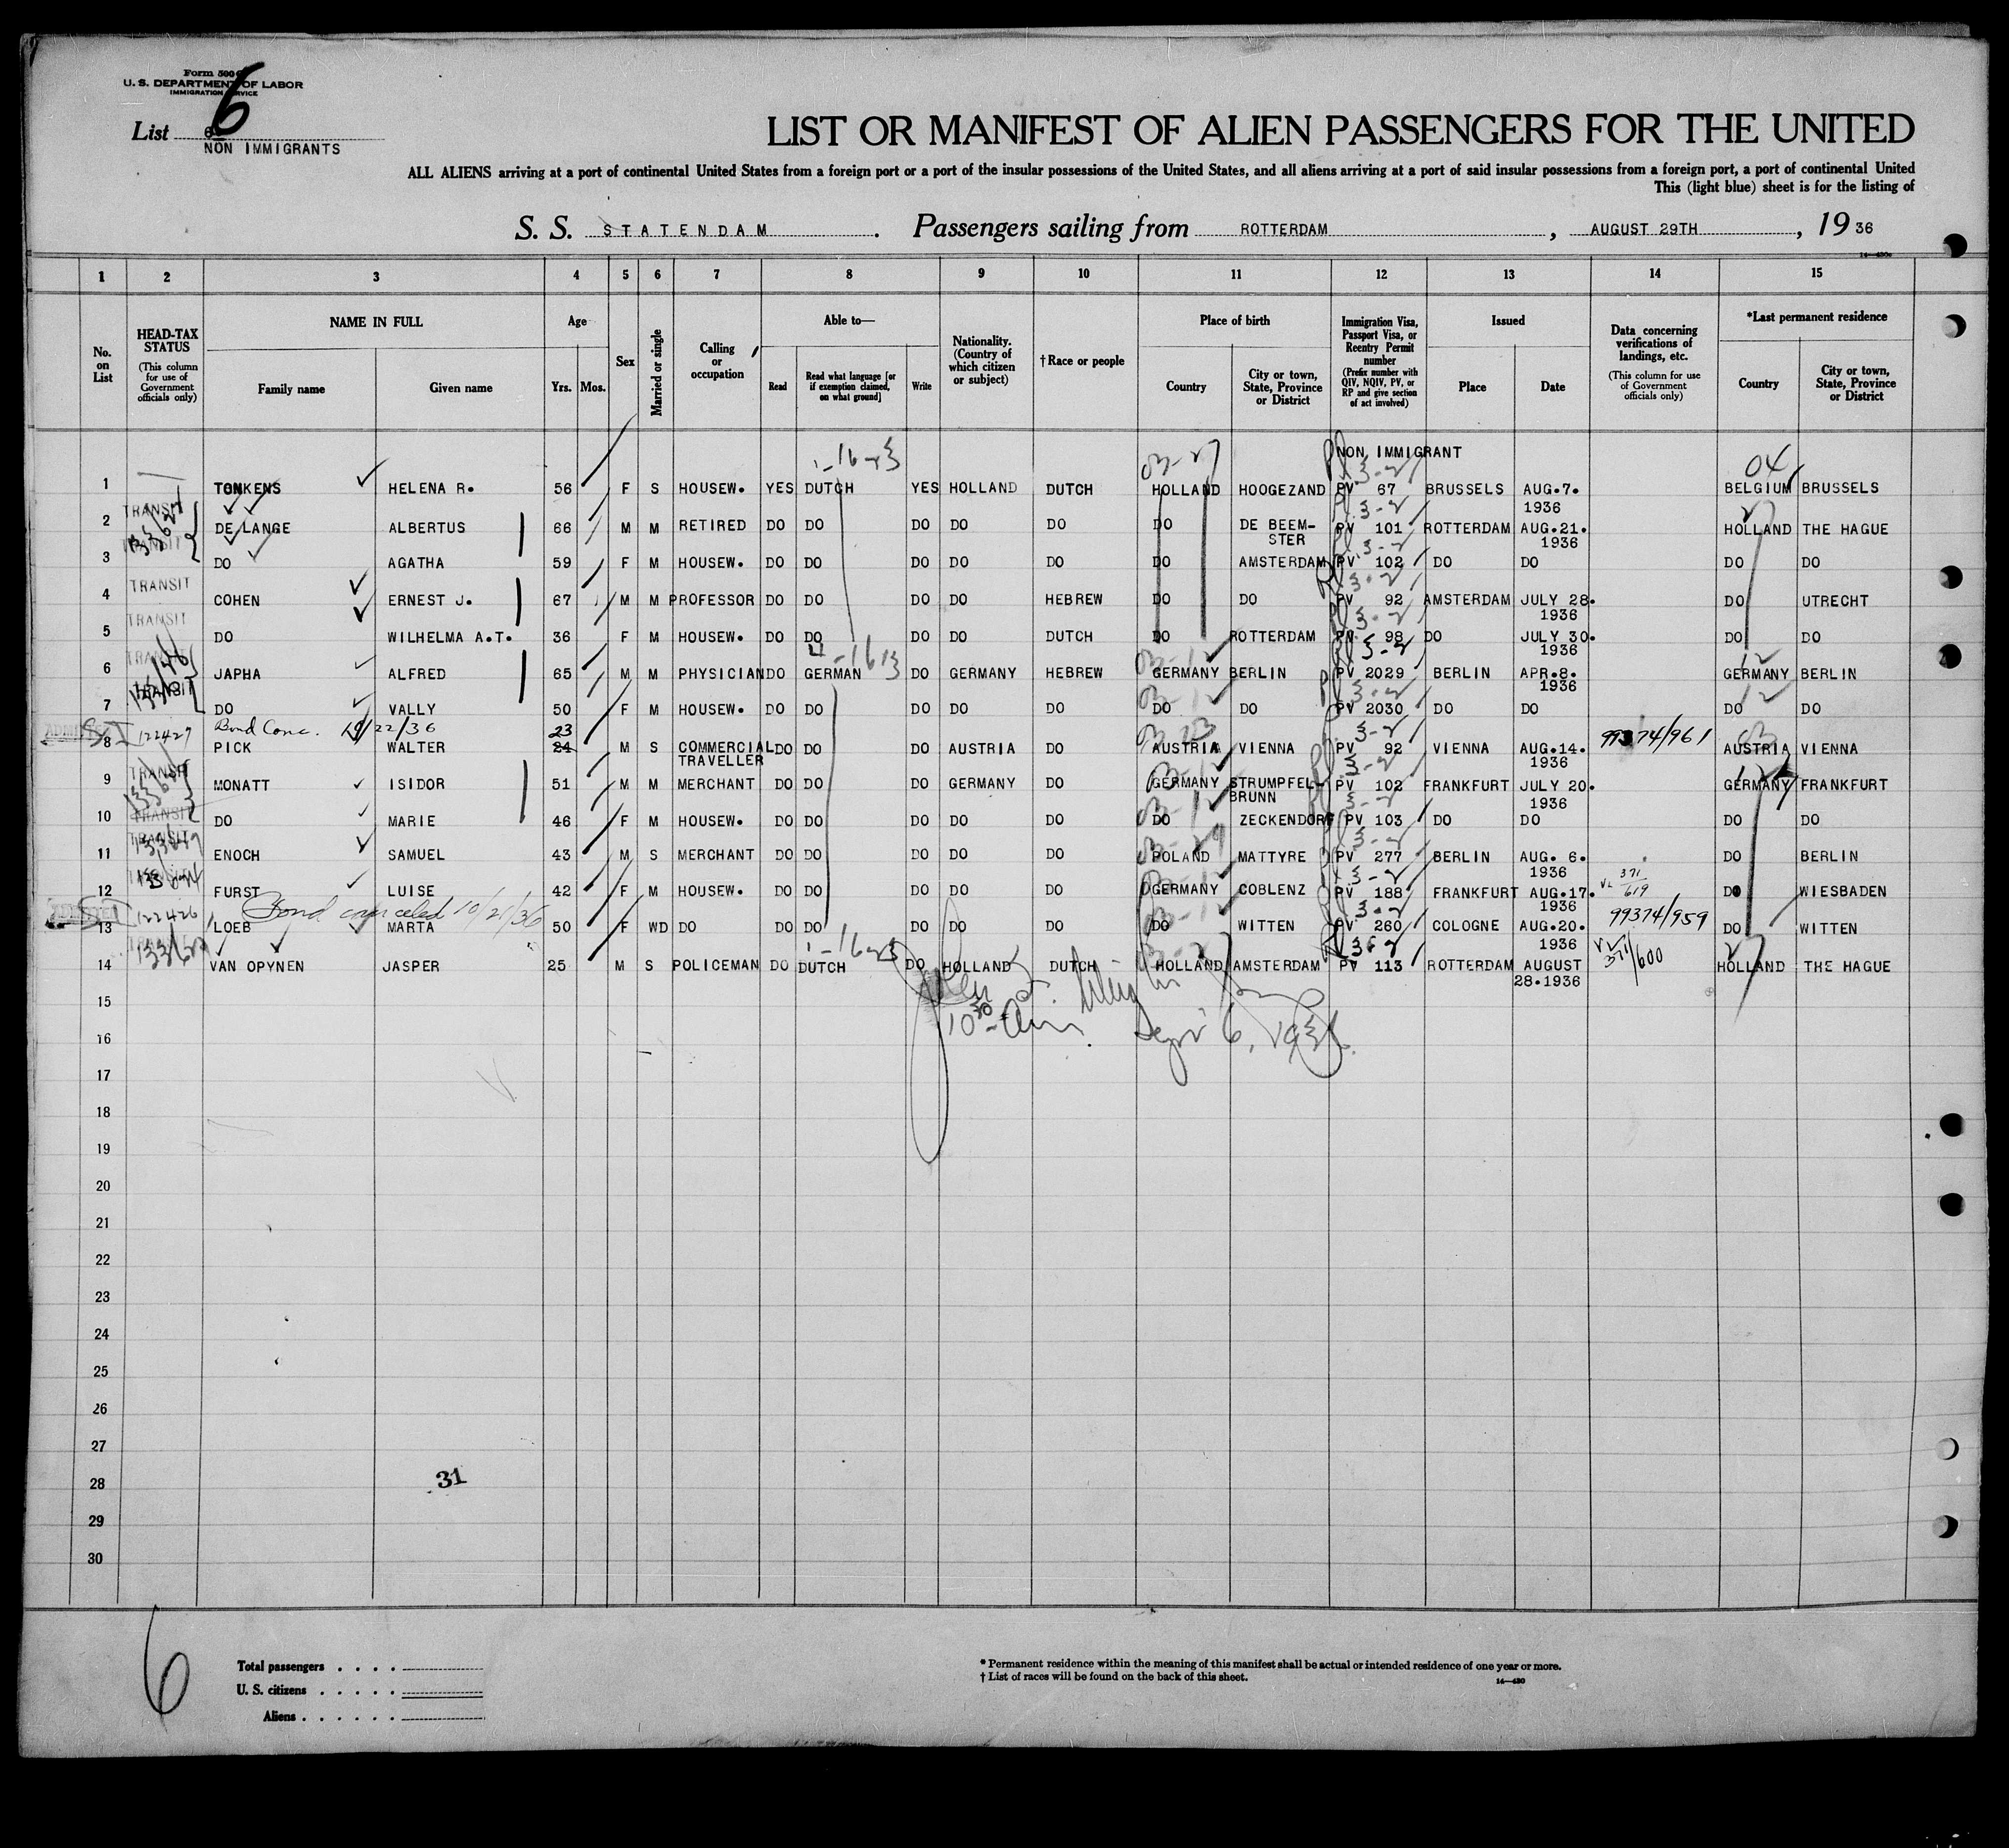 Form 500
U. S. DEPARTMENT OF LABOR
IMMIGRATION SERVICE
List 6
NON IMMIGRANTS
LIST OR MANIFEST OF ALIEN PASSENGERS FOR THE UNITED
ALL ALIENS arriving at a port of continental United States from a foreign port or a port of the insular possessions of the United States, and all aliens arriving at a port of said insular possessions from a foreign port, a port of continental United
This (light blue) sheet is for the listing of
S. S. STATENDAM. Passengers sailing from ROTTERDAM, AUGUST 29TH, 19 36
1 2 3 4 5 6 7 8 9 10 11 12 13 14 15
No. on List
HEAD-TAX STATUS (This column for use of Government officials only)
NAME IN FULL Family name Given name
Age Yrs. Mos.
Sex
Married or single
Calling or occupation
Able to— Read Read what language [or if exemption claimed, on what ground] Write
Nationality. (Country of which citizen or subject)
†Race or people
Place of birth Country City or town, State, Province or District
Immigration Visa, Passport Visa, or Reentry Permit number (Prefix number with QIV, NQIV, PV, or RP and give section of act involved)
Issued Place Date
Data concerning verifications of landings, etc. (This column for use of Government officials only)
*Last permanent residence Country City or town, State, Province or District
NON IMMIGRANT
1 TONKENS HELENA R. 56 F S HOUSEW. YES DUTCH YES HOLLAND DUTCH HOLLAND HOOGEZAND PV 67 BRUSSELS AUG.7. 1936 BELGIUM BRUSSELS
2 TRANSIT DE LANGE ALBERTUS 66 M M RETIRED DO DO DO DO DO DO DE BEEM-STER PV 101 ROTTERDAM AUG.21. 1936 HOLLAND THE HAGUE
3 TRANSIT DO AGATHA 59 F M HOUSEW. DO DO DO DO DO DO AMSTERDAM PV 102 DO DO DO DO
4 TRANSIT COHEN ERNEST J. 67 M M PROFESSOR DO DO DO DO HEBREW DO DO PV 92 AMSTERDAM JULY 28. 1936 DO UTRECHT
5 TRANSIT DO WILHELMA A.T. 36 F M HOUSEW. DO DO DO DO DUTCH DO ROTTERDAM PV 98 DO JULY 30. 1936 DO DO
6 TRANSIT JAPHA ALFRED 65 M M PHYSICIAN DO GERMAN DO GERMANY HEBREW GERMANY BERLIN PV 2029 BERLIN APR.8. 1936 GERMANY BERLIN
7 TRANSIT DO VALLY 50 F M HOUSEW. DO DO DO DO DO DO DO PV 2030 DO DO DO DO
Bond Canc. 10/22/36
8 122427 PICK WALTER 24 23 M S COMMERCIAL TRAVELLER DO DO DO AUSTRIA DO AUSTRIA VIENNA PV 92 VIENNA AUG.14. 1936 99374/961 AUSTRIA VIENNA
9 TRANSIT MONATT ISIDOR 51 M M MERCHANT DO DO DO GERMANY DO GERMANY STRUMPFEL-BRUNN PV 102 FRANKFURT JULY 20. 1936 GERMANY FRANKFURT
10 TRANSIT DO MARIE 46 F M HOUSEW. DO DO DO DO DO DO ZECKENDORF PV 103 DO DO DO DO
11 TRANSIT ENOCH SAMUEL 43 M S MERCHANT DO DO DO DO DO POLAND MATTYRE PV 277 BERLIN AUG. 6. 1936 DO BERLIN
12 FURST LUISE 42 F M HOUSEW. DO DO DO DO DO GERMANY COBLENZ PV 188 FRANKFURT AUG.17. 1936 VL 371/619 DO WIESBADEN
Bond canceled 10/21/36
13 122426 LOEB MARTA 50 F WD DO DO DO DO DO DO DO WITTEN PV 260 COLOGNE AUG.20. 1936 99374/959 DO WITTEN
14 VAN OPYNEN JASPER 25 M S POLICEMAN DO DUTCH DO HOLLAND DUTCH HOLLAND AMSTERDAM PV 113 ROTTERDAM AUGUST 28.1936 VL 371/600 HOLLAND THE HAGUE
15
16
17
18
19
20
21
22
23
24
25
26
27
28
29
30
31
6
Total passengers
U. S. citizens
Aliens
* Permanent residence within the meaning of this manifest shall be actual or intended residence of one year or more.
† List of races will be found on the back of this sheet.
14—430